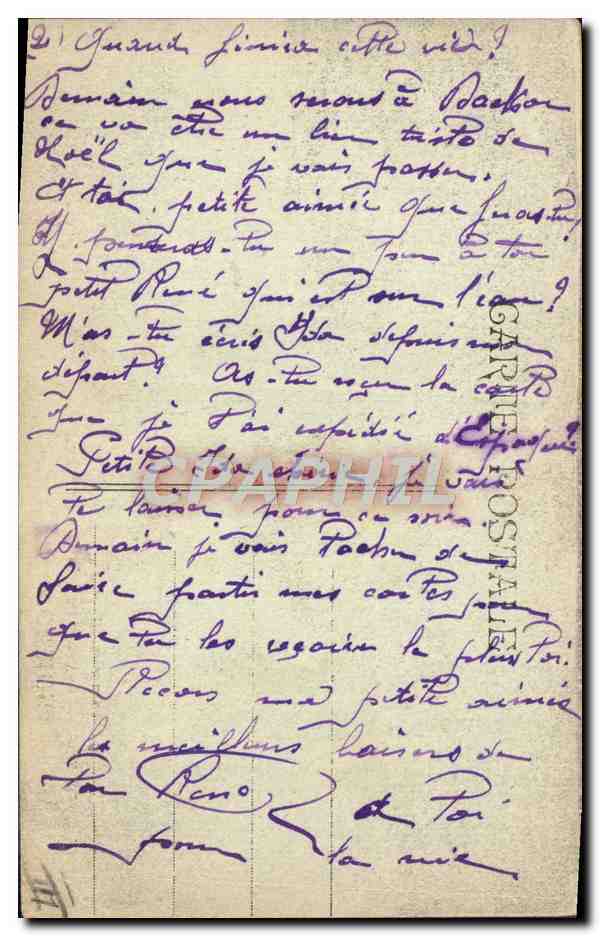 2) Quand finira cette vie ?
Demain nous serons à
ça va être un bien triste de
Noël que je vais passer.
Et toi, petite aimée que fais tu,
Y penseras-tu un peu à ton
petit René qui est sur l'eau ?
M'as-tu écris Ida depuis mon
départ ? As-tu reçu la carte
que je t'ai expédiée d'Espagne ?
Petite Ida je vais
te laisser pour ce soir.
Demain je vais tacher de
faire partir mes cartes pour
que tu les reçoives le plus
Reçois ma petite aimée
les meilleurs baisers de
Ton René à toi
pour la vie
CARTE POSTALE
CPAPHIL
III